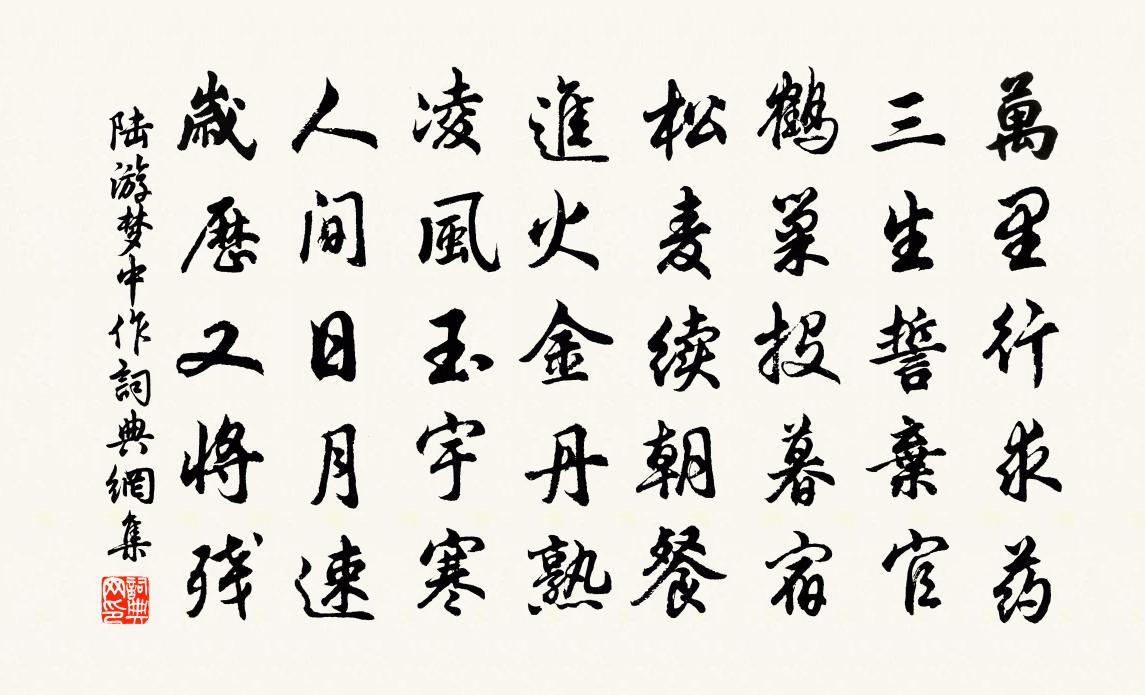 萬里行求药
三生誓棄官
鶴巢投暮宿
松麦续朝餐
進火金丹熟
凌風玉宇寒
人间日月速
歳歷又将残
陆游梦中作詞典網集
詞典网印